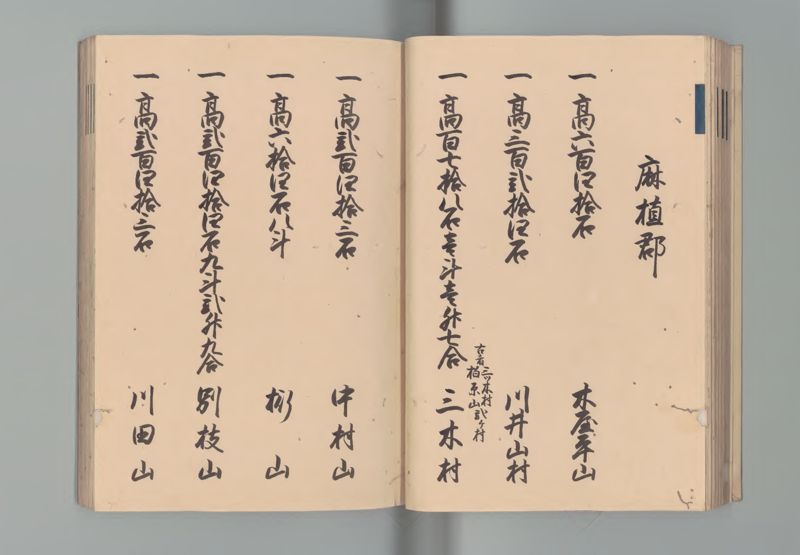 麻植郡
一高六百四拾石 木屋平山
一高三百弐拾四石 川井山村
一高百七拾八石壱斗壱升七合 三木村
古者三ツ木村
柏原山弐ヶ村
一高弐百四拾三石 中村山
一高六拾四石八斗 榁山
一高弐百四拾四石九斗弐升九合 別枝山
一高弐百四拾三石 川田山